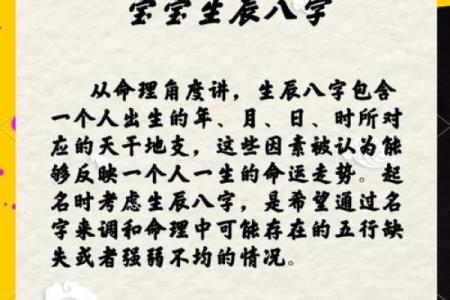 宝宝生辰八字
从命理角度讲，生辰八字包含
一个人出生的年、月、日、时所对
应的天干地支，这些因素被认为能
够反映一个人一生的命运走势。起
名时考虑生辰八字，是希望通过名
字来调和命理中可能存在的五行缺
失或者强弱不均的情况。